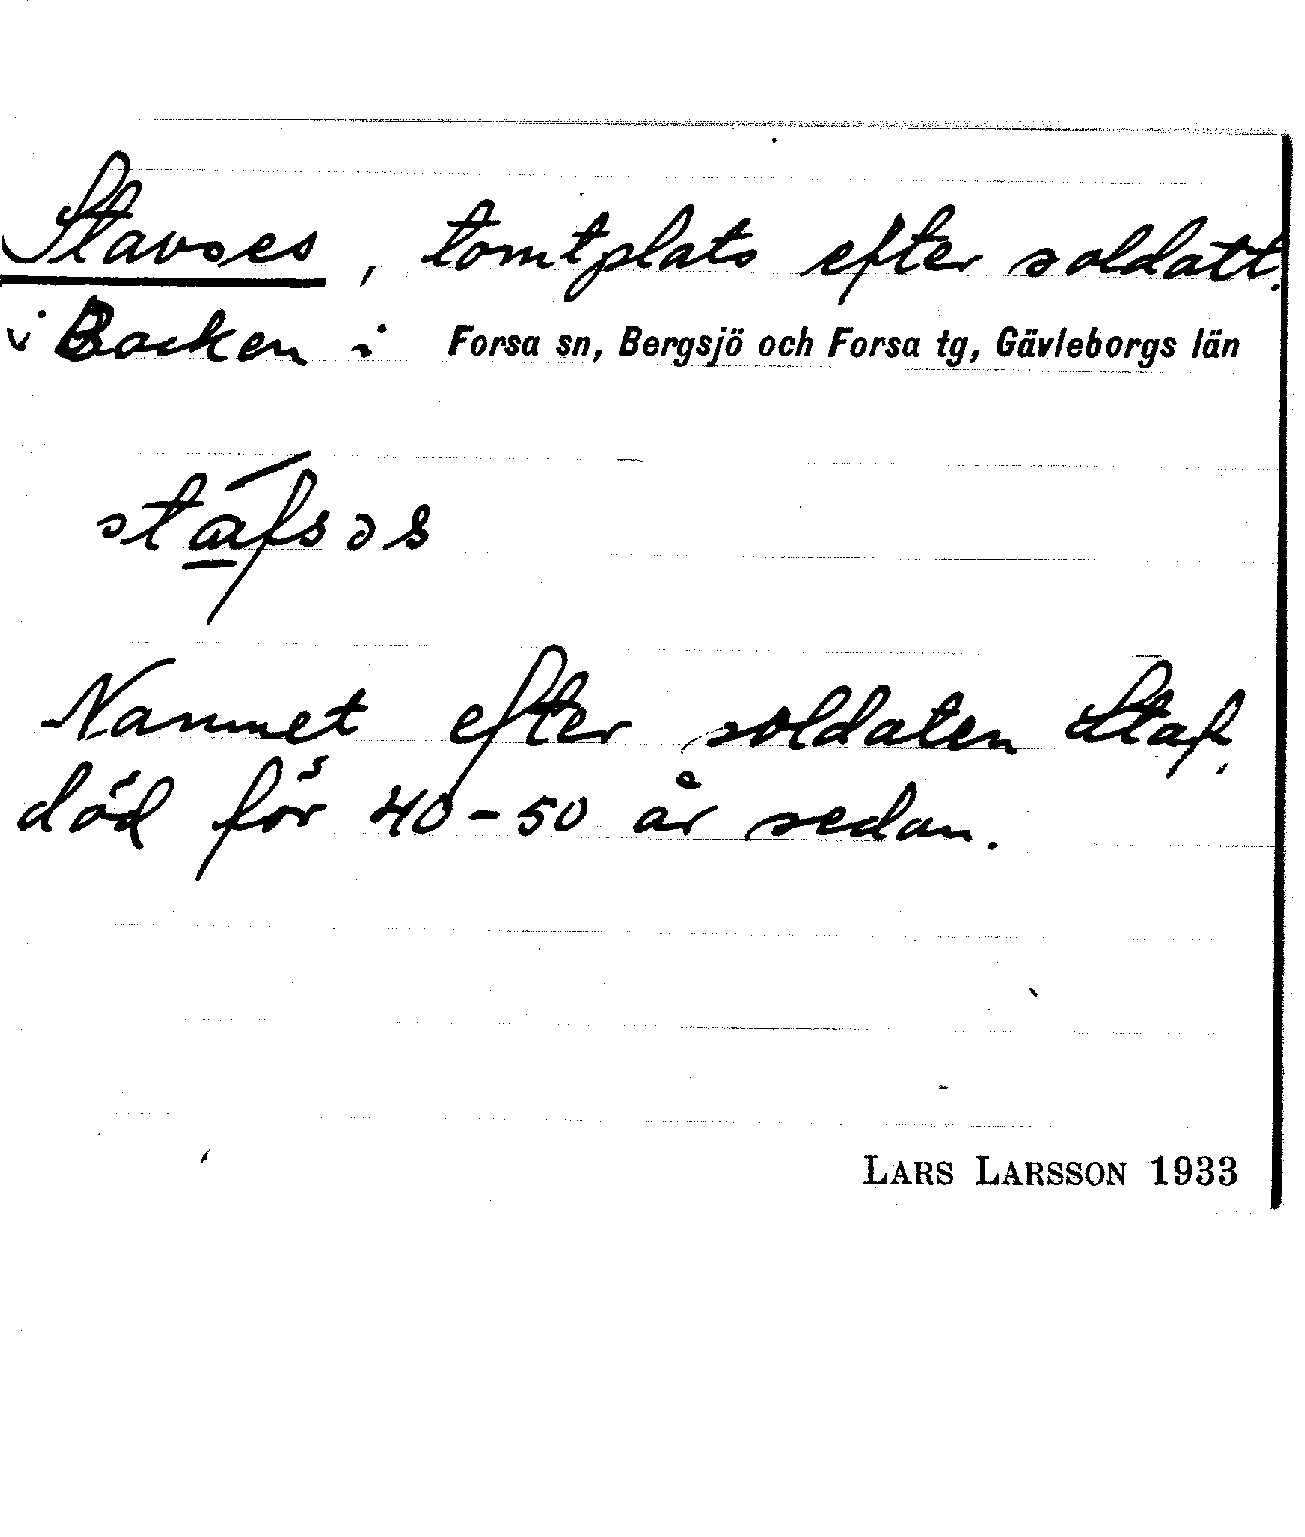 Stavses, tomtplats efter soldatt.
i Backen i Forsa sn, Bergsjö och Forsa tg, Gävleborgs län
stáfsəs
Namnet efter soldaten Staf,
död för 40-50 år sedan.
LARS LARSSON 1933